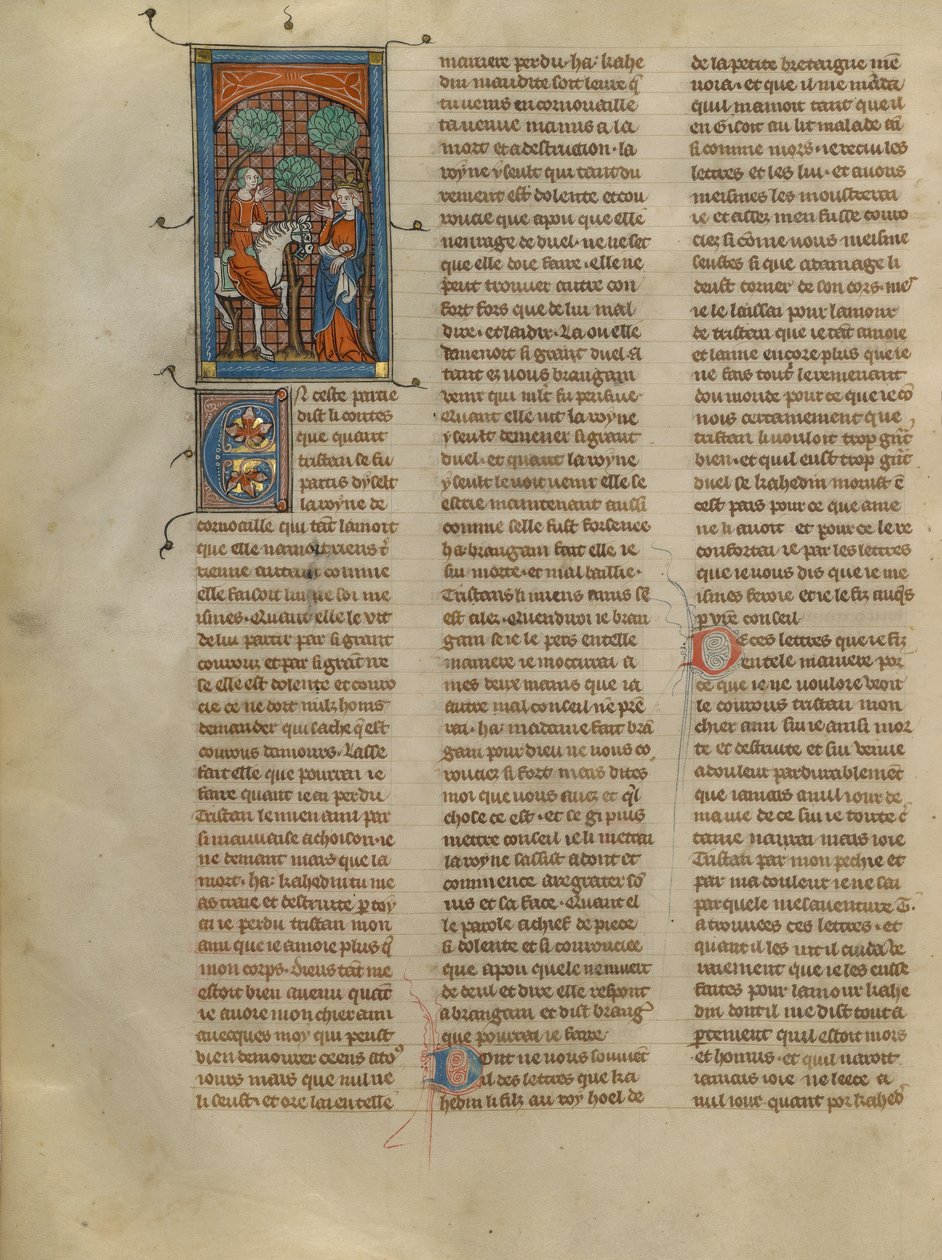 En ceste partie
dist li contes
que quant
tristan se fu
partis dyselt
la royne de
cornoaille qui tant lamoit
que elle namoit riens t̄
rienne autant comme
elle faisoit lui ne soi me
ismes. Quant elle le vit
de lui partir par si grant
courouz et par si grant yre
se elle est dolente et couro
cie ce ne doit nulz homs
demander qui sache q̄ est
courous damours. Lasse
fait elle que pourrai ie
faire quant ie ai perdu
Tristan le mien ami par
si mauuaise achoison. ie
ne demant mais que la
mort. ha. kahedin tu me
as traie et destruite ꝑ toy
ai ie perdu tristan mon
ami que ie amoie plus q̄
mon corps. Dieus tāt me
estoit bien auenu quāt
ie auoie mon chier ami
auecques moy qui peust
bien demourer ceens atoꝰ
iours mais que nul ne
li seust. et ore lai en telle
maniere perdu. ha. kahe
din maudite soit leure q̄
tu venis en cornouaille
ta venue ma mis a la
mort et a destrucion. la
royne yseult qui tant du
rement est dolente et cou
roucie que a pou que elle
nenrage de duel. ne ne set
que elle doie faire. elle ne
peut trouuer autre con
fort fors que de lui mal
dire. et laidir. La ou elle
demenoit si grant duel. A
tant ez vous brangain
venir qui mlt̄ fu pensiue
Quant elle vit la royne
yseult demener si grant
duel. et quant la royne
yseult le voit venir elle se
escrie maintenant aussi
comme selle fust forsenee
ha brangain fait elle ie
sui morte. et mal baillie.
Tristans li miens amis sē
est alez. Quen diroi ie bran
gain se ie le pers en telle
maniere ie mocirrai a
mes deux mains que ia
autre mal conseil nē prē
rai. ha. madame fait brā
gain pour dieu ne vous co
rouciez si fort mais dites
moi que vous auez et q̄l
chose ce est. et se gi puis
mettre conseil ie li mettrai
la royne sassist adont et
commence a regrater sō
vis et sa face. Quant el
le parole a chief de piece
si dolente et si courouciee
que a pou quele ne muert
de deul et dire elle respont
a brangain et dist brangī
que pourrai ie faire
Dont ne vous souuiēt
il des lettres que ka
hedin li filz au roy hoel de
de la petite bretaigne mē
uoia. et que il me māda
quil mamoit tant que il
en gisoit au lit malade tā
si comme mors. ie reciu les
lettres et les lui. et a vous
meismes les moustrerai
ie et assez men fusse couro
ciez si cōme vous meisme
seustes si que a damage li
deust torner de son cors. mes
ie le laissai pour lamour
de tristan que ie tāt amoie
et laime encore plus que ie
ne fais tout le remenant
dou monde pour ce que ie cō
nois certainement que
tristan li vouloit trop grāt
bien. et quil eust trop grāt
duel se kahedin morust ē
cest pais pour ce que ame
ne li auoit et pour ce le re
confortai ie par les lettres
que ie vous dis que ie me
ismes feroie et ie le fiz auq̄s
ꝑ vr̄e conseil
De ces lettres que ie fiz
en tele maniere por
ce que ie ne vouloie veoir
le courous tristan mon
chier ami sui ie ainsi mor
te et destruite et sui venue
a douleur pardurablement
que iamais a nul iour de
ma vie de ce sui ie toute c̄
taine naurai mais ioie
Tristan par mon pechie et
par ma douleur ie ne sai
par quele mesauenture T.
a trouuees ces lettres. et
quant il les vit il cuida ve
raiement que ie les eusse
faites pour lamour kahe
din dont il me dist tout a
ꝑtement quil estoit mors
et honnis. et quil naroit
iamais ioie ne leece a
nul iour quant por kahed̄